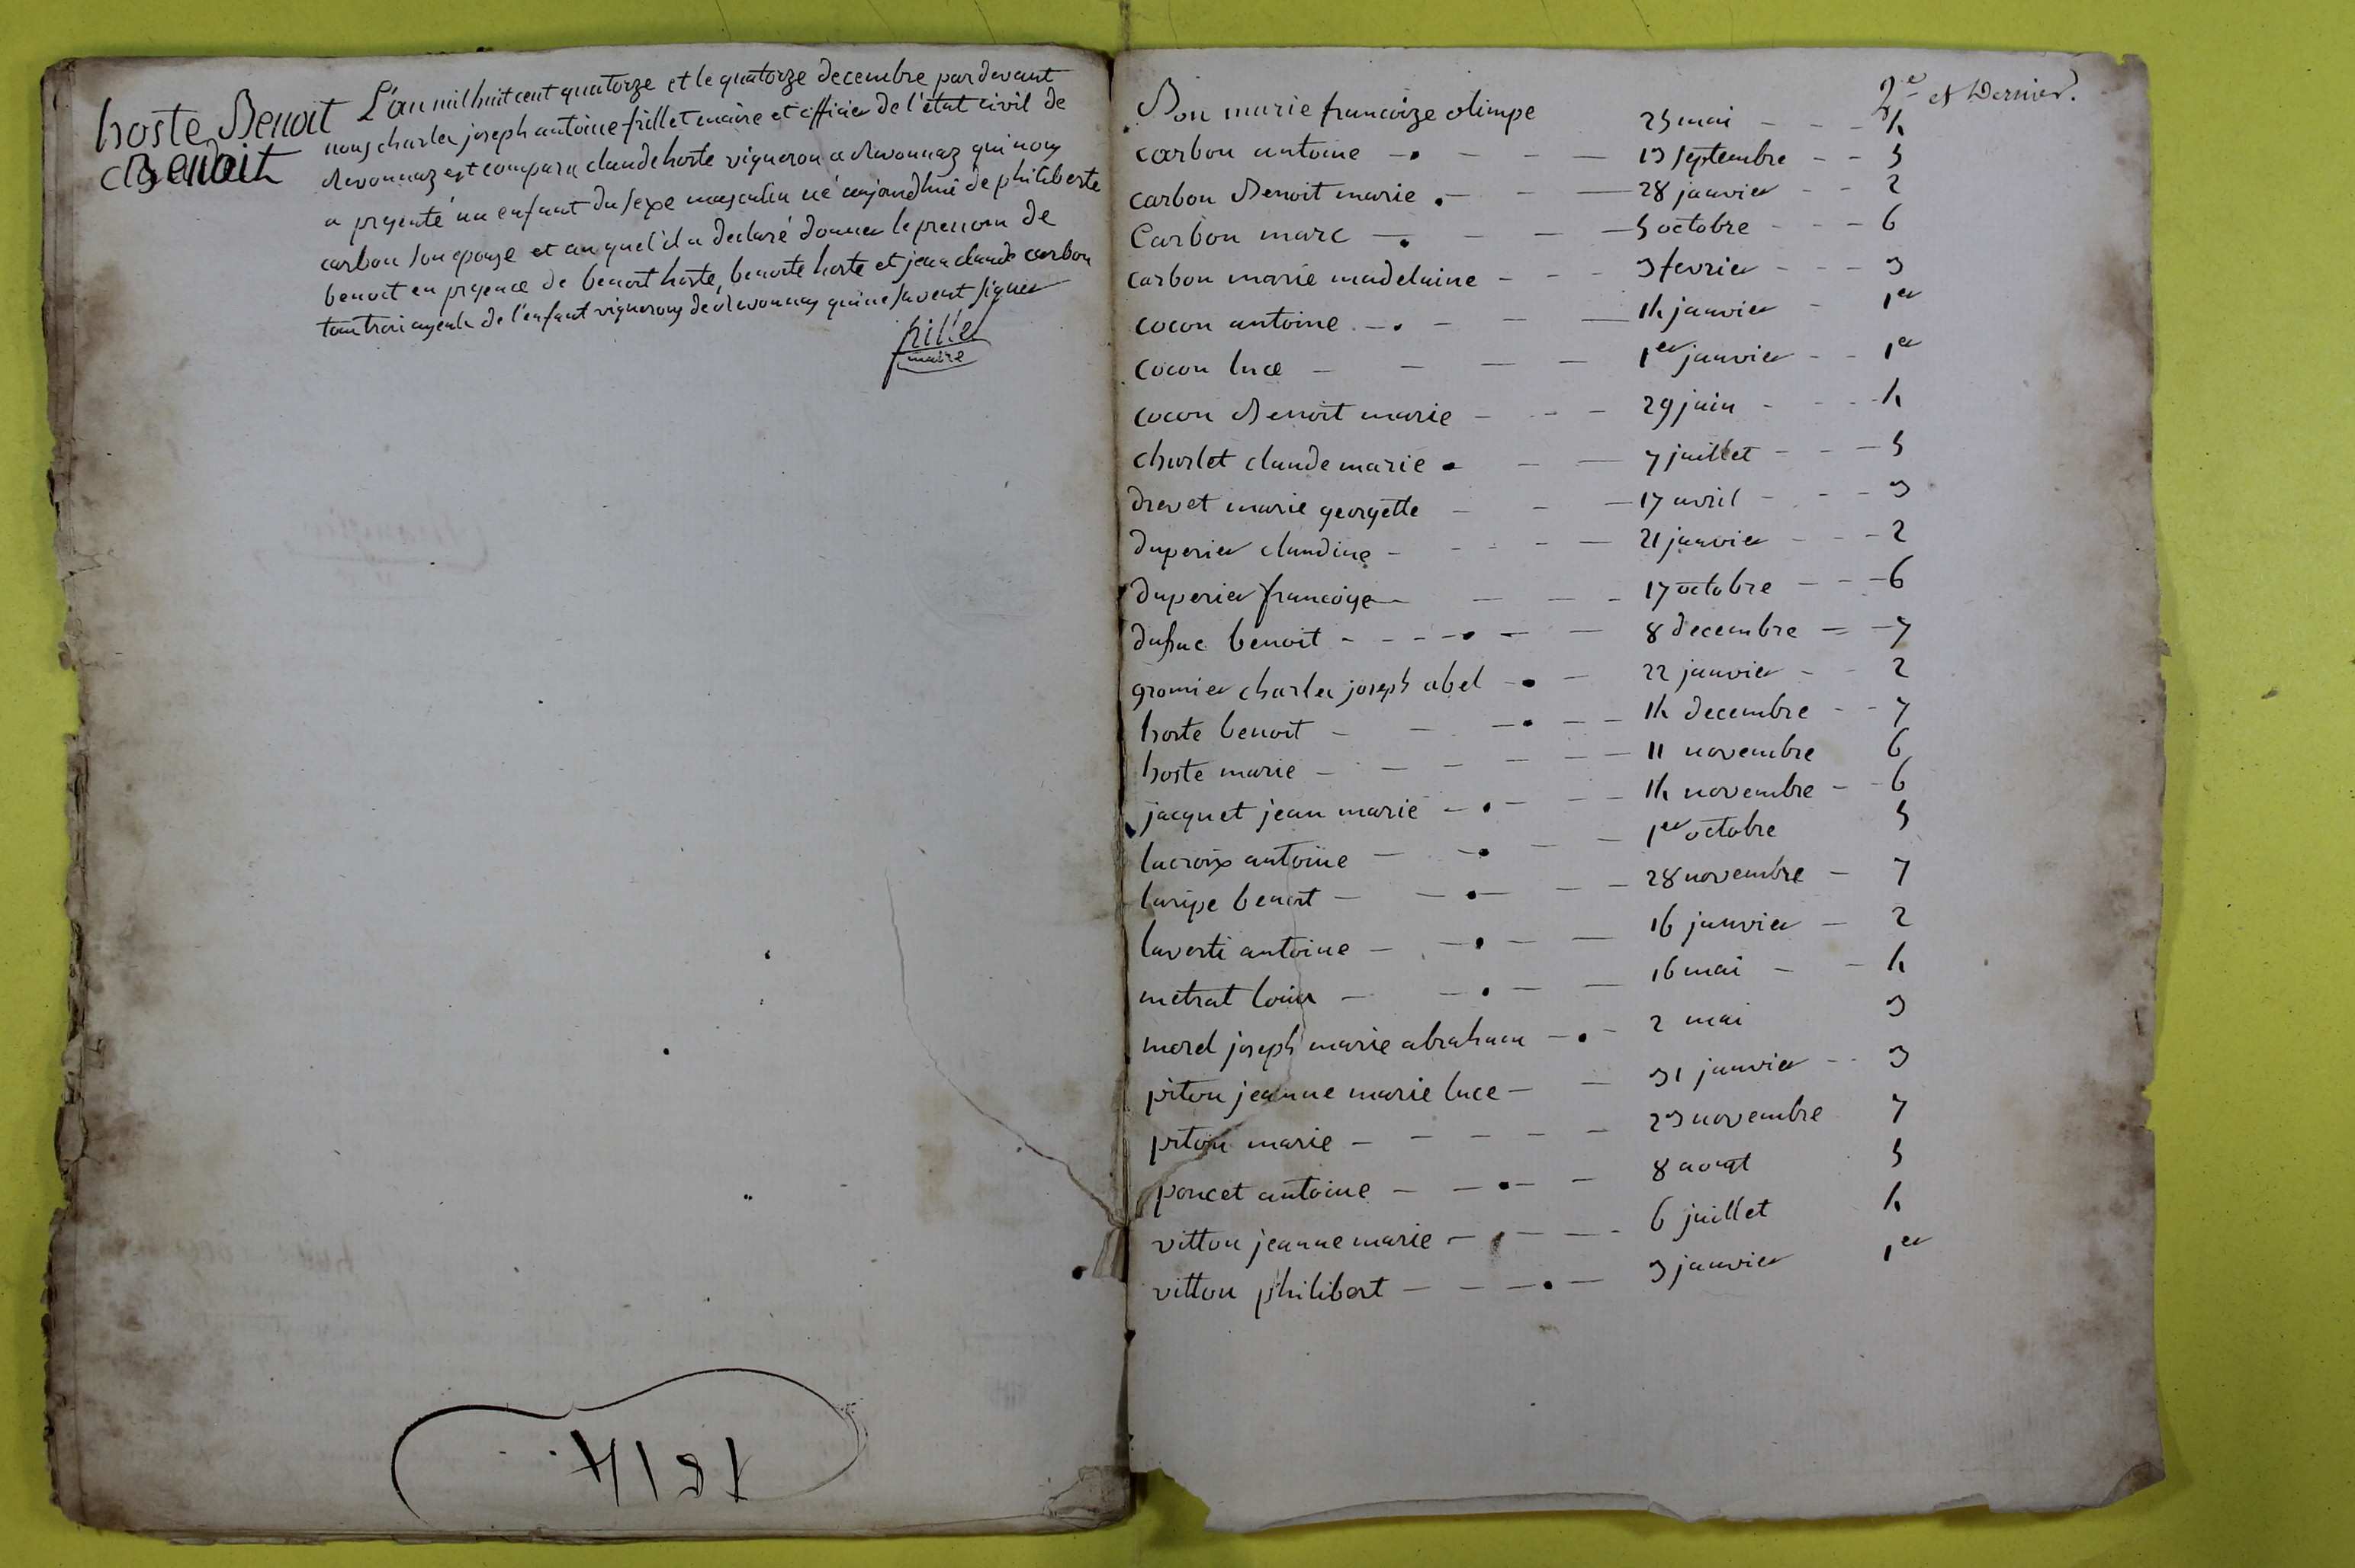 hoste Benoit
Benoit
L'an mil huit cent quatorze et le quatorze decembre pardevant
nous charles joseph antoine frillet maire et officier de l'état civil de
Revonnaz est comparu claude hoste vigneron a Revonnaz qui nous
a presenté un enfant du sexe masculin né aujourdhui de philiberte
carbon son epouse et auquel il a declaré donner le prenom de
benoit en presence de benoit hoste, benoite hoste et jean claude carbon
tous trois ayeuls de l'enfant vignerons de Revonnaz qui ne savent signer
frillet
maire
1814
2e et Dernier.
Bon marie francoize olimpe 25 mai - - - 4
carbon antoine - - - - 13 septembre - - 5
carbon Benoit marie - - - 28 janvier - - 2
Carbon marc - - - - 5 octobre - - - 6
carbon marie madelaine - - - 3 fevrier - - - 3
cocon antoine - - - - 14 janvier - 1er
cocon luce - - - - 1er janvier - - 1er
cocon Benoit marie - - - 29 juin - - - 4
charlet claude marie - - - 7 juillet - - - 5
drevet marie georgette - - - 17 avril - - - 3
duperier claudine - - - - 21 janvier - - - 2
duperier francoise - - - - 17 octobre - - - 6
dufuc benoit - - - - - - 8 decembre - - 7
gromier charles joseph abel - - 22 janvier - - 2
hoste benoit - - - - - 14 decembre - - 7
hoste marie - - - - - - 11 novembre 6
jacquet jean marie - - - - 14 novembre - - 6
lacroix antoine - - - - 1er octobre 5
laripe benoit - - - - - 28 novembre - 7
laverti antoine - - - - 16 janvier - 2
metrat louis - - - - 16 mai - - 4
morel joseph marie abraham - - 2 mai 3
piton jeanne marie luce - - 31 janvier - - 3
piton marie - - - - - 23 novembre 7
poncet antoine - - - - 8 aoust 5
vitton jeanne marie - - - - 6 juillet 4
vitton philibert - - - - 3 janvier 1er